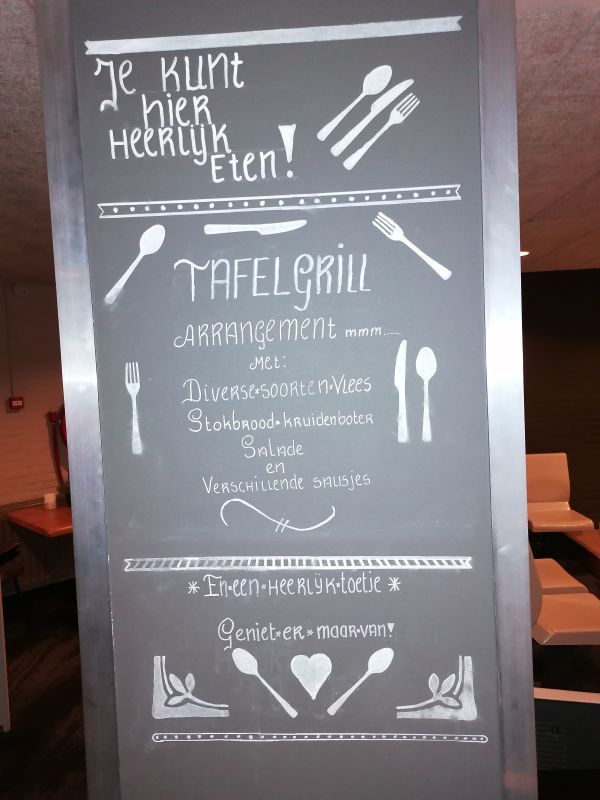 Je kunt
hier
Heerlijk
Eten!
TAFELGRILL
ARRANGEMENT mmm.....
Met:
Diverse*soorten*Vlees
Stokbrood*kruidenboter
Salade
en
Verschillende sausjes
* En*een*Heerlijk*toetje *
Geniet*er*maar*van!